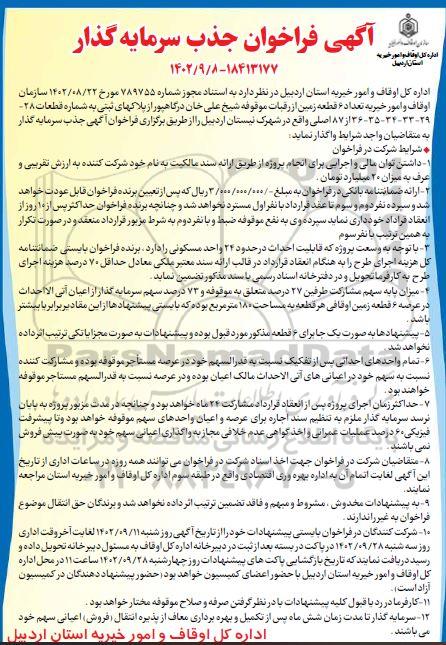 آگهی فراخوان جذب سرمایه گذار
۱۴۰۲/۹/۸-۱۸۴۱۳۱۷۷
اداره کل اوقاف و امور خیریه
استان اردبیل
اداره کل اوقاف و امور خیریه استان اردبیل در نظر دارد به استناد مجوز شماره ۷۸۹۷۵۵ مورخ ۱۴۰۲/۰۸/۲۲ سازمان
اوقاف و امور خیریه تعداد ۶ قطعه زمین از رقبات موقوفه شیخ علی خان درگاهپور از پلاکهای ثبتی به شماره قطعات ۲۸-
۲۹-۳۳-۳۴-۳۵-۳۶ از ۸۷ اصلی واقع در شهرک نیستان اردبیل را از طریق برگزاری فراخوان آگهی جذب سرمایه گذار
به متقاضیان واجد شرایط واگذار نماید:
شرایط شرکت در فراخوان
۱-داشتن توان مالی و اجرایی برای انجام پروژه از طریق ارائه سند مالکیت به نام خود شرکت کننده به ارزش تقریبی و
عرف به میزان ۲۰ میلیارد تومان
۲-ارائه ضمانتنامه بانکی در فراخوان به مبلغ ۳/۰۰۰/۰۰۰/۰۰۰ ریال که پس از تعیین برنده فراخوان قابل عودت خواهد
شد و سپرده نفر دوم و سوم تا عقد قرارداد با نفر اول مسترد نخواهد شد و چنانچه برنده فراخوان حداکثر پس از ۱۰ روز از
انعقاد قرارداد خودداری نماید سپرده وی به نفع موقوفه ضبط و با نفر دوم به شرط مزبور قرارداد منعقد و در صورت تکرار
به همین ترتیب با نفر سوم
۳- با توجه به وسعت پروژه که قابلیت احداث در حدود ۲۴ واحد مسکونی را دارد . برنده فراخوان بایستی ضمانتنامه
کل هزینه اجرای طرح را به هنگام انعقاد قرارداد در قالب ارائه سند معتبر ملکی معادل حداقل ۷۰ درصد هزینه اجرای
طرح به کارفرما تحویل و در دفترخانه اسناد رسمی با سند مذکور تضمین نماید .
۴-میزان پایه سهم مشارکت طرفین ۲۷ درصد متعلق به موقوفه و ۷۳ درصد سهم سرمایه گذار از اعیان آتی الاحداث
در عرصه ۶ قطعه زمین اوقافی هر قطعه به مساحت ۱۸۰ متر مربع بوده که بایستی پیشنهادها از این مقادیر برابر یا بیشتر
باشد .
۵- پیشنهادها به صورت یک جا برای ۶ قطعه مذکور مورد قبول بوده و پیشنهادات به صورت مجزا یا تکی ترتیب اثر داده
نخواهد شد .
۶-تمام واحدهای احداثی پس از تفکیک نسبت به قدرالسهم خود در عرصه مستاجر موقوفه بوده و مشارکت کننده
نسبت به سهم خود در اعیانی های آتی الاحداث مالک اعیان بوده و در عرصه نسبت به قدرالسهم مستاجر موقوفه
خواهند بود .
۷- حداکثر زمان اجرای پروژه پس از انعقاد قرارداد مشارکت ۲۴ ماه خواهد بود و چنانچه در مدت مزبور پروژه به پایان
نرسد سرمایه گذار ملزم به تنظیم سند اجاره برای عرصه و اعیان واحدهای سهم موقوفه خواهد بود و تا پیشرفت
فیزیکی ۶۰ درصد عملیات عمرانی و اخذ گواهی عدم خلافی مجاز به واگذاری اعیانی سهم خود به صورت پیش فروش
نمی باشند .
۸- متقاضیان شرکت در فراخوان جهت اخذ اسناد شرکت در فراخوان می توانند همه روزه در ساعات اداری از تاریخ
این آگهی لغایت اتمام آن به اداره بهره وری اقتصادی واقع در طبقه سوم اداره کل اوقاف و امور خیریه استان مراجعه
نمایند.
۹- به پیشنهادات مخدوش ، مشروط و مبهم و فاقد تضمین ترتیب اثر داده نخواهد شد و برندگان حق انتقال موضوع
فراخوان به غیر را ندارند .
۱۰- شرکت کنندگان در فراخوان بایستی پیشنهادات خود را از تاریخ آگهی روز شنبه ۱۴۰۲/۰۹/۱۱ لغایت آخر وقت اداری
روز سه شنبه ۱۴۰۲/۰۹/۲۸ در پاکت در بسته بعد از ثبت در دبیرخانه اداره کل اوقاف به مسئول دبیرخانه تحویل داده و
رسید دریافت نمایند که تاریخ بازگشایی پاکت های پیشنهادات روز چهارشنبه ۱۴۰۲/۰۹/۲۸ ساعت ۱۱ در محل اداره
کل اوقاف و امور خیریه استان اردبیل با حضور اعضای کمیسیون خواهد بود (حضور پیشنهاد دهندگان در کمیسیون
آزاد است) .
۱۱-کارفرما در رد یا قبول کلیه پیشنهادات با در نظر گرفتن صرفه و صلاح موقوفه مختار خواهد بود .
۱۲-سرمایه گذار تا مدت زمان شش ماه پس از تکمیل و بهره برداری معاف از پذیره انتقال (فروش) اعیانی سهم خود
می باشند .
اداره کل اوقاف و امور خیریه استان اردبیل